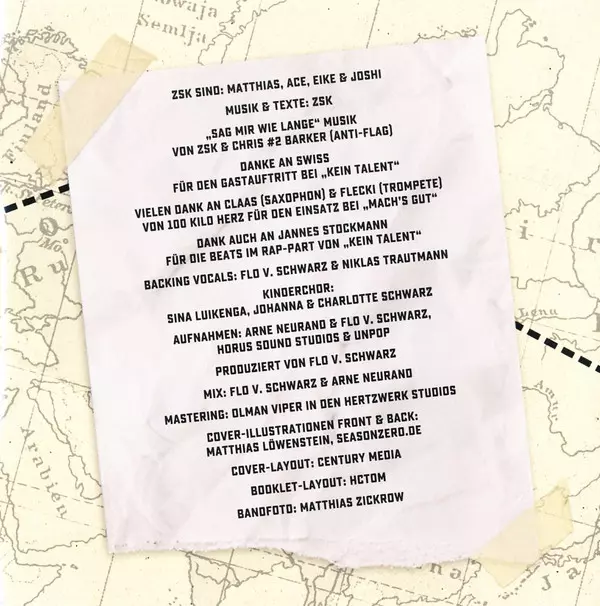 owaja
Semlja
Finland
St. Peters
Mo
Ru
Arabien
Lena
Amur
Ja
ZSK SIND: MATTHIAS, ACE, EIKE & JOSHI
MUSIK & TEXTE: ZSK
„SAG MIR WIE LANGE“ MUSIK
VON ZSK & CHRIS #2 BARKER (ANTI-FLAG)
DANKE AN SWISS
FÜR DEN GASTAUFTRITT BEI „KEIN TALENT“
VIELEN DANK AN CLAAS (SAXOPHON) & FLECKI (TROMPETE)
VON 100 KILO HERZ FÜR DEN EINSATZ BEI „MACH'S GUT“
DANK AUCH AN JANNES STOCKMANN
FÜR DIE BEATS IM RAP-PART VON „KEIN TALENT“
BACKING VOCALS: FLO V. SCHWARZ & NIKLAS TRAUTMANN
KINDERCHOR:
SINA LUIKENGA, JOHANNA & CHARLOTTE SCHWARZ
AUFNAHMEN: ARNE NEURAND & FLO V. SCHWARZ,
HORUS SOUND STUDIOS & UNPOP
PRODUZIERT VON FLO V. SCHWARZ
MIX: FLO V. SCHWARZ & ARNE NEURAND
MASTERING: OLMAN VIPER IN DEN HERTZWERK STUDIOS
COVER-ILLUSTRATIONEN FRONT & BACK:
MATTHIAS LÖWENSTEIN, SEASONZERO.DE
COVER-LAYOUT: CENTURY MEDIA
BOOKLET-LAYOUT: HCTOM
BANDFOTO: MATTHIAS ZICKROW